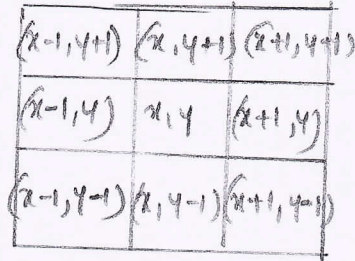 (x-1, y+1) (x, y+1) (x+1, y+1)
(x-1, y) x, y (x+1, y)
(x-1, y-1) (x, y-1) (x+1, y-1)